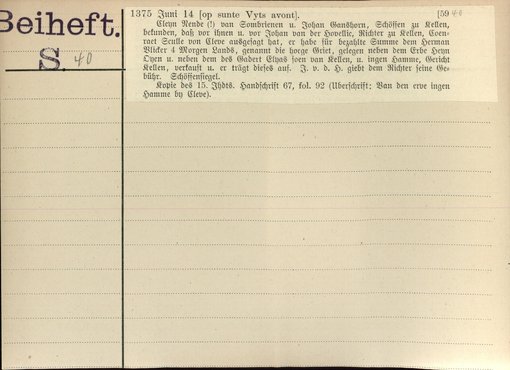 Beiheft.
S. 40
1375 Juni 14 [op sunte Vyts avont]. [59 40
Cleyn Rende (!) van Sombrienen u. Johan Ganshorn, Schöffen zu Kellen,
bekunden, daß vor ihnen u. vor Johan van der Hovellie, Richter zu Kellen, Coen-
raet Sculle von Cleve ausgesagt hat, er habe für bezahlte Summe dem Herman
Vlicker 4 Morgen Lands, genannt die hoege Griet, gelegen neben dem Erbe Heyn
Oyen u. neben dem des Gadert Elyas soen van Kellen, u. ingen Hamme, Gericht
Kellen, verkauft u. er trägt dieses auf. J. v. d. H. giebt dem Richter seine Ge-
bühr. Schöffensiegel.
Kopie des 15. Jhdts. Handschrift 67, fol. 92 (Überschrift: Van den erve ingen
Hamme by Cleve).